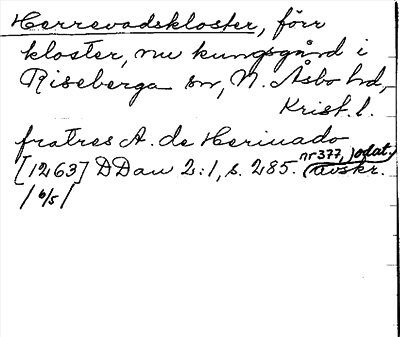 Herrevadskloster, förr
kloster, nu kungsgård i
Riseberga sn, N. Åsbo hd,
Krist. l.
fratres A. deHeriuado
[1263] DDan 2:1, s. 285. nr 377, odat. avskr.
/6/5/